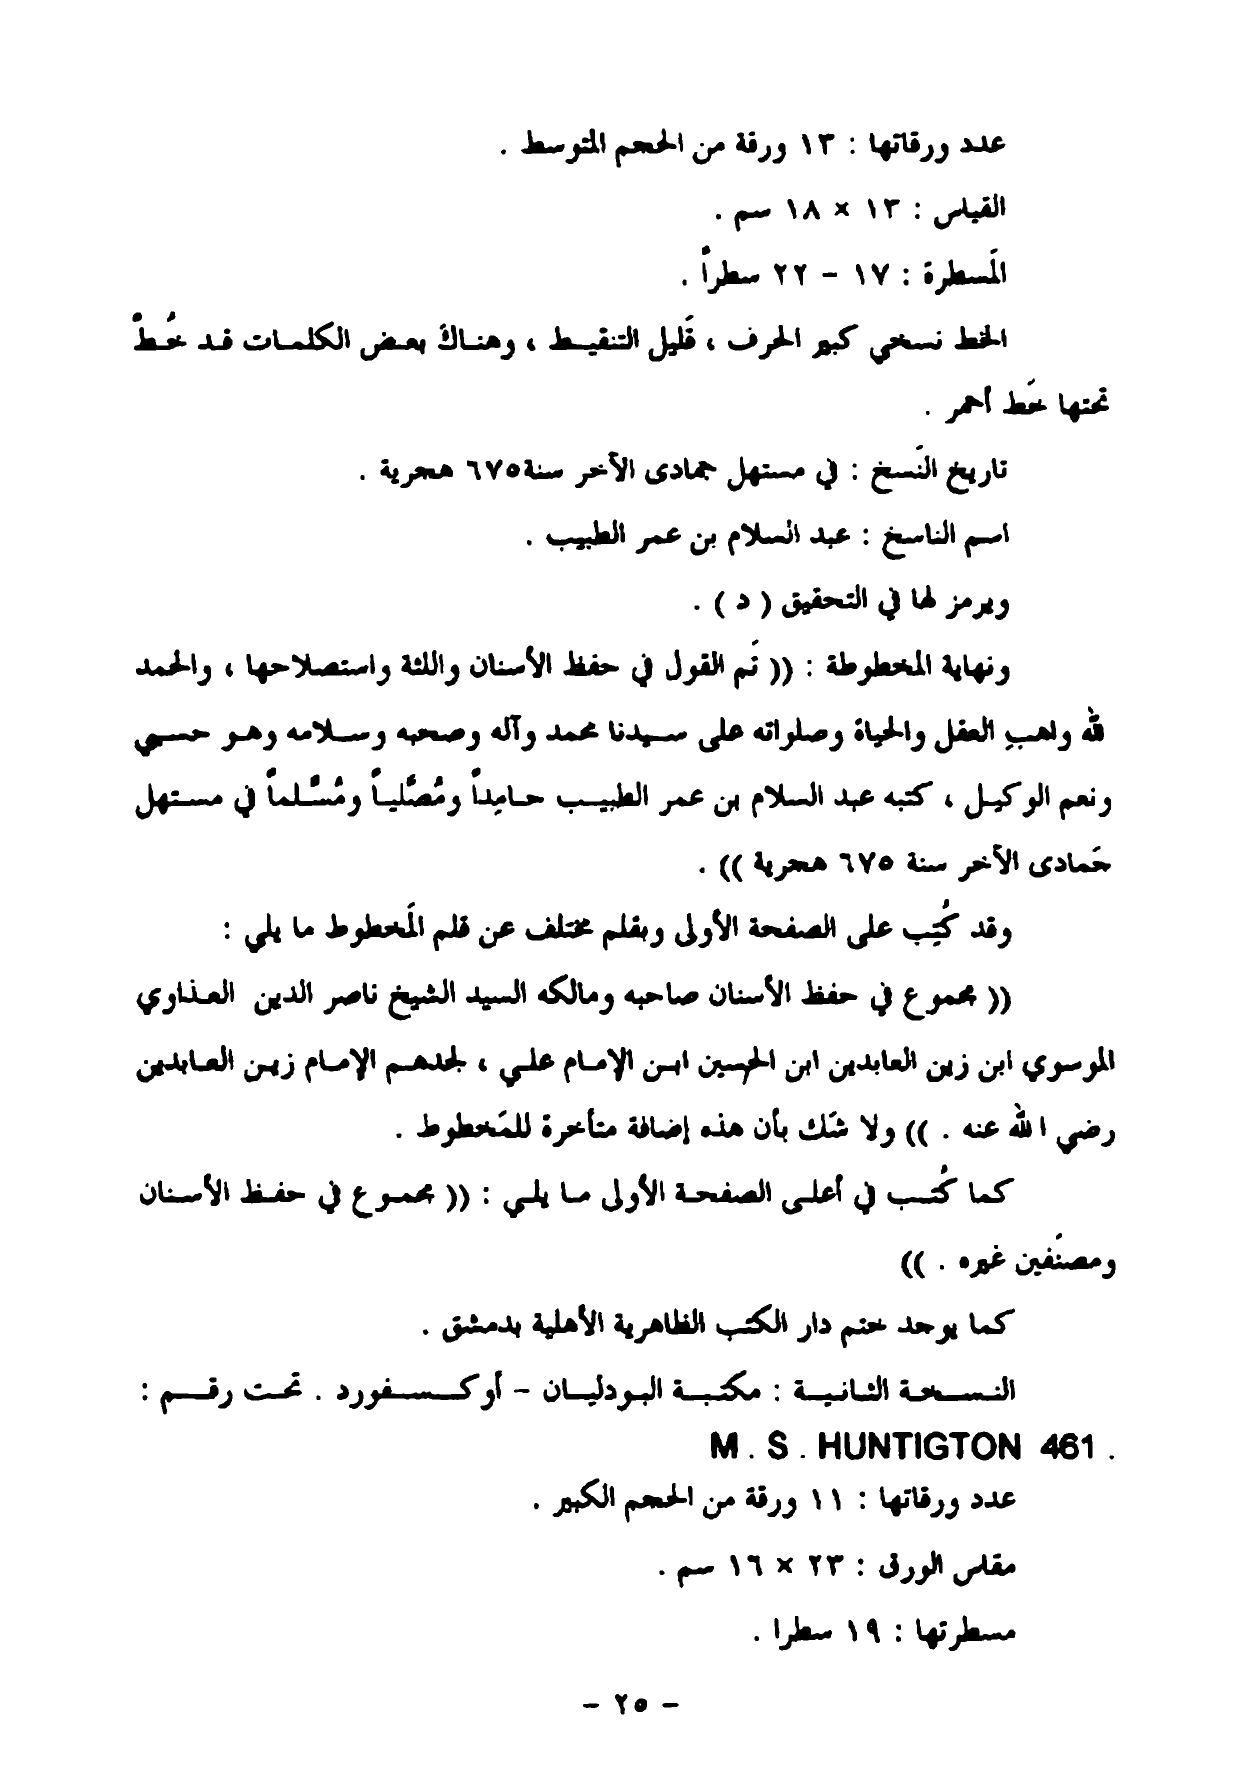 عدد ورقاتها : ١٣ ورقة من الحجم المتوسط .
القياس : ١٣ × ١٨ سم .
المَسطرة : ١٧ – ٢٢ سطراً .
الخط نسخي كبير الحرف ، قَليل التنقيط ، وهناكَ بعض الكلمات قد خُطَّ
تحتها خَط أحمر .
تاريخ النَسخ : في مستهل جمادى الآخر سنة ٦٧٥ هجرية .
اسم الناسخ : عبد السلام بن عمر الطبيب .
ويرمز لها في التحقيق ( د ) .
ونهاية المخطوطة : (( تَم القول في حفظ الأسنان واللثة واستصلاحها ، والحمد
لله واهبِ العقل والحياة وصلواته على سيدنا محمد وآله وصحبه وسلامه وهو حسبي
ونعم الوكيل ، كتبه عبد السلام بن عمر الطبيب حامِداً ومُصَّلياً ومُسَّلماً في مستهل
جَمادى الآخر سنة ٦٧٥ هجرية )) .
وقد كُتِب على الصفحة الأولى وبقلم مختلف عن قلم المَخطوط ما يلي :
(( مجموع في حفظ الأسنان صاحبه ومالكه السيد الشيخ ناصر الدين العذاوي
الموسوي ابن زين العابدين ابن الحسين ابن الإمام علي ، لجدهم الإمام زين العابدين
رضي الله عنه . )) ولا شَك بأن هذه إضافة متأخرة للمَخطوط .
كما كُتب في أعلى الصفحة الأولى ما يلي : (( مجموع في حفظ الأسنان
ومصنَفين غيره . ))
كما يوجد ختم دار الكتب الظاهرية الأهلية بدمشق .
النسخة الثانية : مكتبة البودليان – أوكسفورد . تحت رقم :
M . S . HUNTIGTON 461 .
عدد ورقاتها : ١١ ورقة من الحجم الكبير .
مقاس الورق : ٢٣ × ١٦ سم .
مسطرتها : ١٩ سطرا .
– ٢٥ –